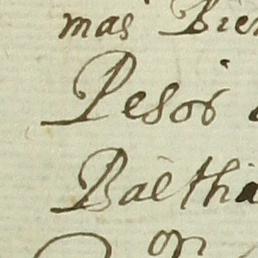 mas Bien
Pesos
Baltha
on